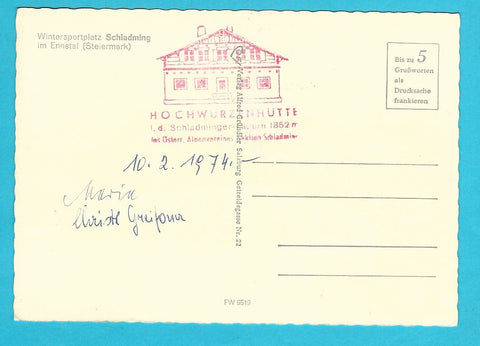 Wintersportplatz Schladming
im Ennstal (Steiermark)
HOCHWURZENHÜTTE
i. d. Schladminger 1852 m
des Österr. Alpenvereines Sektion Schladming
Bis zu 5
Grußworten
als
Drucksache
frankieren
Verlag Alfred Gründler Salzburg, Nr. 22
10. 2. 1974.
Maria
Christl
FW 9510